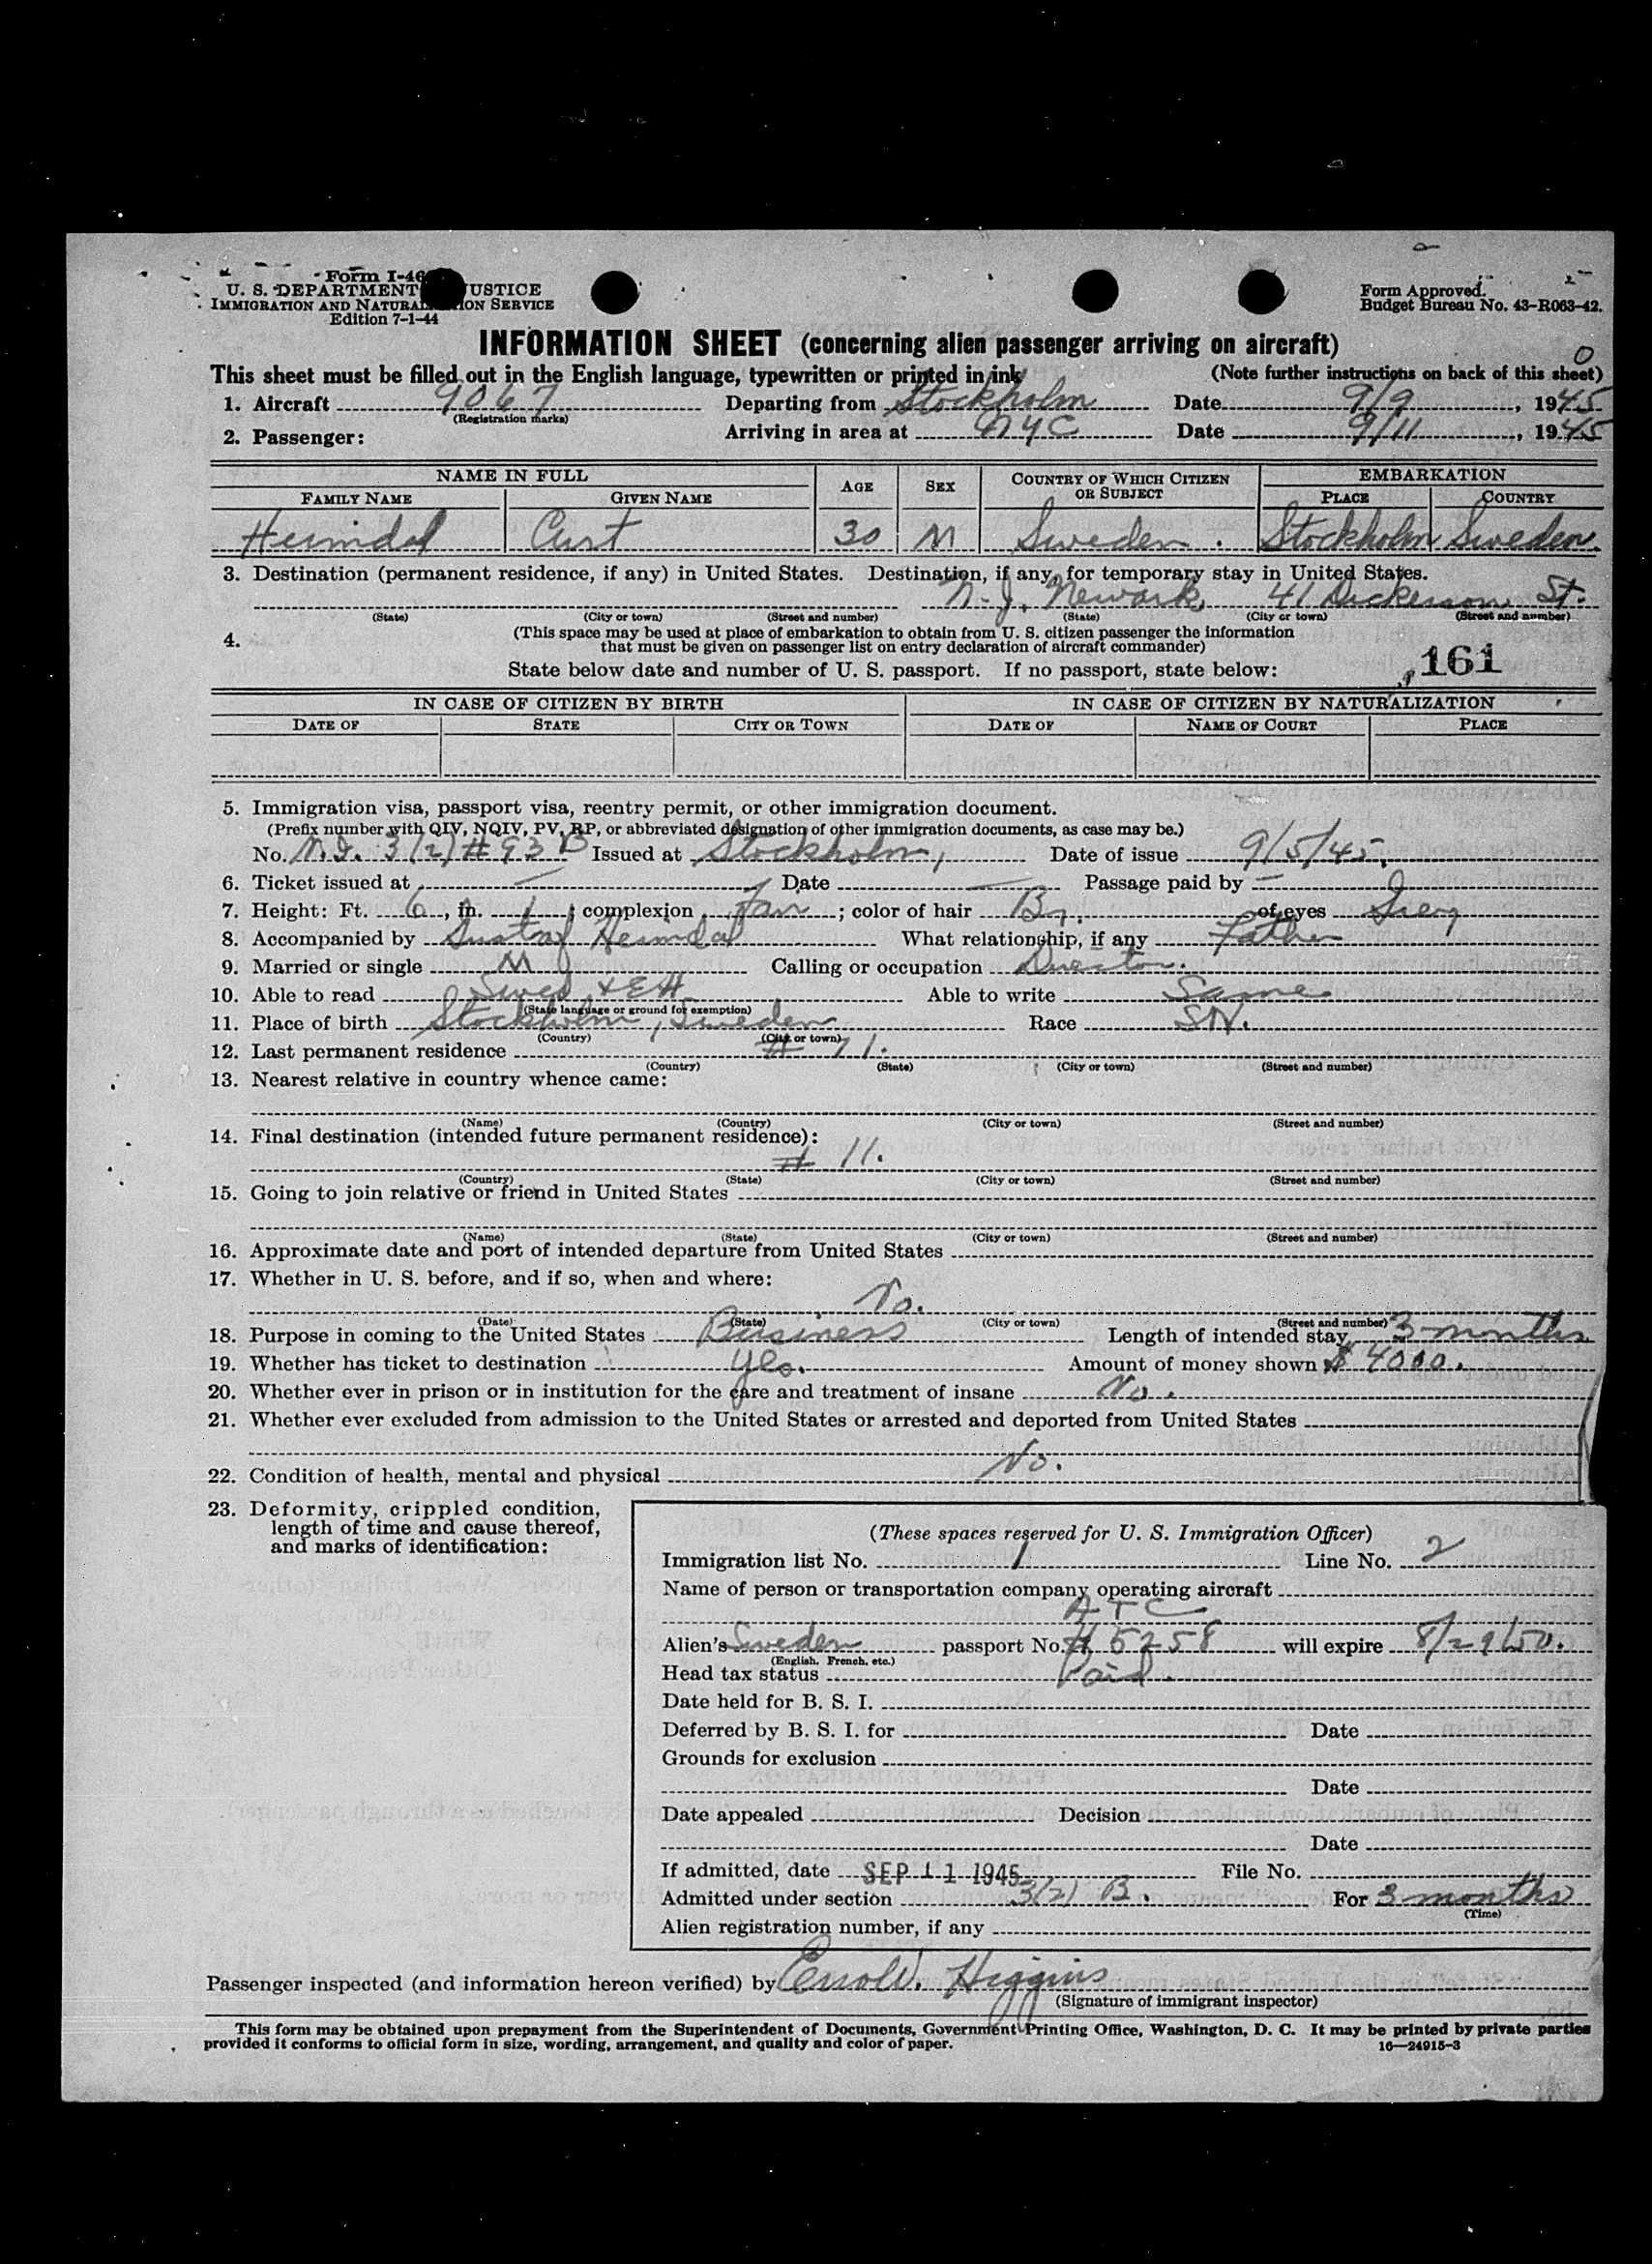 Form I-46
U. S. DEPARTMENT USTICE
IMMIGRATION AND NATURAL ION SERVICE
Edition 7-1-44
Form Approved.
Budget Bureau No. 43-R063-42.
INFORMATION SHEET (concerning alien passenger arriving on aircraft)
This sheet must be filled out in the English language, typewritten or printed in ink
(Note further instructions on back of this sheet)
1. Aircraft 9067 Departing from Stockholm Date 9/9, 1945
(Registration marks)
2. Passenger: Arriving in area at NYC Date 9/11, 1945
NAME IN FULL AGE SEX COUNTRY OF WHICH CITIZEN OR SUBJECT EMBARKATION
FAMILY NAME GIVEN NAME PLACE COUNTRY
Heimdal Curt 30 M Sweden. Stockholm Sweden.
3. Destination (permanent residence, if any) in United States. Destination, if any, for temporary stay in United States.
N.J. Newark, 41 Dickerson St.
(State) (City or town) (Street and number) (State) (City or town) (Street and number)
4. (This space may be used at place of embarkation to obtain from U. S. citizen passenger the information
that must be given on passenger list on entry declaration of aircraft commander)
State below date and number of U. S. passport. If no passport, state below: 161
IN CASE OF CITIZEN BY BIRTH IN CASE OF CITIZEN BY NATURALIZATION
DATE OF STATE CITY OR TOWN DATE OF NAME OF COURT PLACE
5. Immigration visa, passport visa, reentry permit, or other immigration document.
(Prefix number with QIV, NQIV, PV, RP, or abbreviated designation of other immigration documents, as case may be.)
No. 3(2) # 93 B Issued at Stockholm, Date of issue 9/5/45.
6. Ticket issued at — Date — Passage paid by —
7. Height: Ft. 6, in. 1; complexion Fair; color of hair Br. of eyes Grey
8. Accompanied by Gustaf Heimdal What relationship, if any Father
9. Married or single M Calling or occupation Director.
10. Able to read Swed & EH Able to write Same
(State language or ground for exemption)
11. Place of birth Stockholm, Sweden Race SN.
(Country) (City or town)
12. Last permanent residence # 11.
(Country) (State) (City or town) (Street and number)
13. Nearest relative in country whence came:
(Name) (Country) (City or town) (Street and number)
14. Final destination (intended future permanent residence):
# 11.
(Country) (State) (City or town) (Street and number)
15. Going to join relative or friend in United States
(Name) (State) (City or town) (Street and number)
16. Approximate date and port of intended departure from United States
17. Whether in U. S. before, and if so, when and where:
No.
(Date) (State) (City or town) (Street and number)
18. Purpose in coming to the United States Business Length of intended stay 3 months
19. Whether has ticket to destination Yes. Amount of money shown $ 4000.
20. Whether ever in prison or in institution for the care and treatment of insane No.
21. Whether ever excluded from admission to the United States or arrested and deported from United States
No.
22. Condition of health, mental and physical
23. Deformity, crippled condition,
length of time and cause thereof,
and marks of identification:
(These spaces reserved for U. S. Immigration Officer)
Immigration list No. 1 Line No. 2
Name of person or transportation company operating aircraft
ATC
Alien's Sweden passport No. # 5258 will expire 8/29/50.
(English, French, etc.)
Head tax status Paid.
Date held for B. S. I.
Deferred by B. S. I. for Date
Grounds for exclusion
Date
Date appealed Decision
Date
If admitted, date SEP 11 1945 File No.
Admitted under section 3(2) B. For 3 months
(Time)
Alien registration number, if any
Passenger inspected (and information hereon verified) by Errol W. Higgins
(Signature of immigrant inspector)
This form may be obtained upon prepayment from the Superintendent of Documents, Government Printing Office, Washington, D. C. It may be printed by private parties
provided it conforms to official form in size, wording, arrangement, and quality and color of paper.
16—24915-3